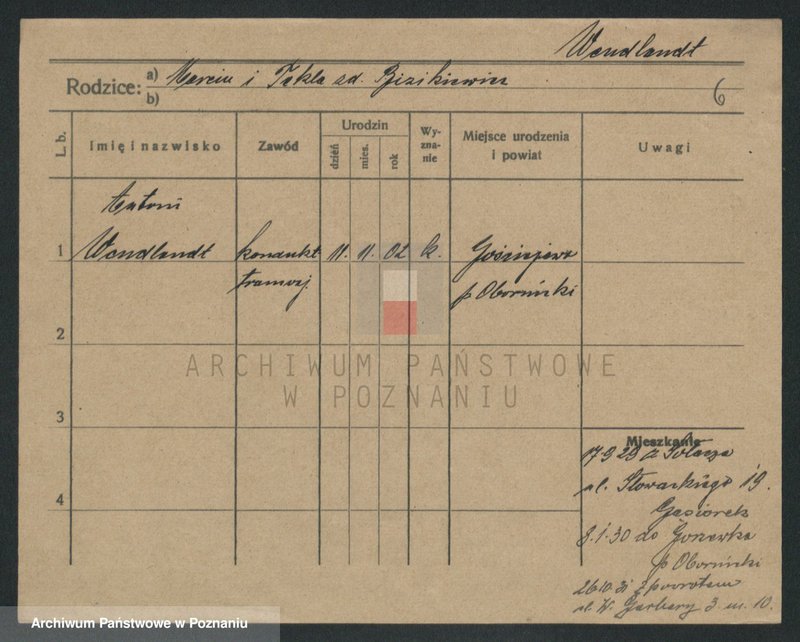 Wendlandt
Rodzice: a) Marcin i Tekla zd. Bizikiewicz
b)
6
L. b.
Imię i nazwisko
Zawód
Urodzin
dzień
mies.
rok
Wy-
zna-
nie
Miejsce urodzenia
i powiat
Uwagi
Antoni
1 Wendlandt kondukt 11. 11. 02 k. Gościejewo
tramwaj. p Obornicki
2
ARCHIWUM PAŃSTWOWE
W POZNANIU
3
Mieszkanie
17 9 29 z Sołacza
ul. Słowackiego 19.
Gąsiorek
4
8.1.30 do Gorzewka
p Obornicki
26 10 31 z powrotem
ul. W. Garbary 3 m. 10.
Archiwum Państwowe w Poznaniu